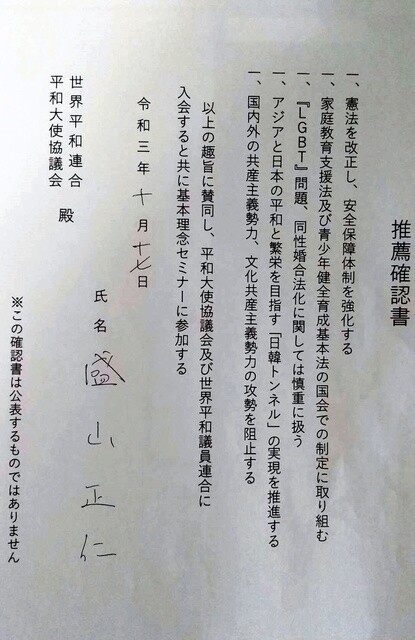 推薦確認書
一、憲法を改正し、安全保障体制を強化する
一、家庭教育支援法及び青少年健全育成基本法の国会での制定に取り組む
一、『LGBT』問題、同性婚合法化に関しては慎重に扱う
一、アジアと日本の平和と繁栄を目指す「日韓トンネル」の実現を推進する
一、国内外の共産主義勢力、文化共産主義勢力の攻勢を阻止する
以上の趣旨に賛同し、平和大使協議会及び世界平和議員連合に
入会すると共に基本理念セミナーに参加する
令和三年十月十七日
世界平和連合
平和大使協議会 殿
氏名 盛山正仁
※この確認書は公表するものではありません